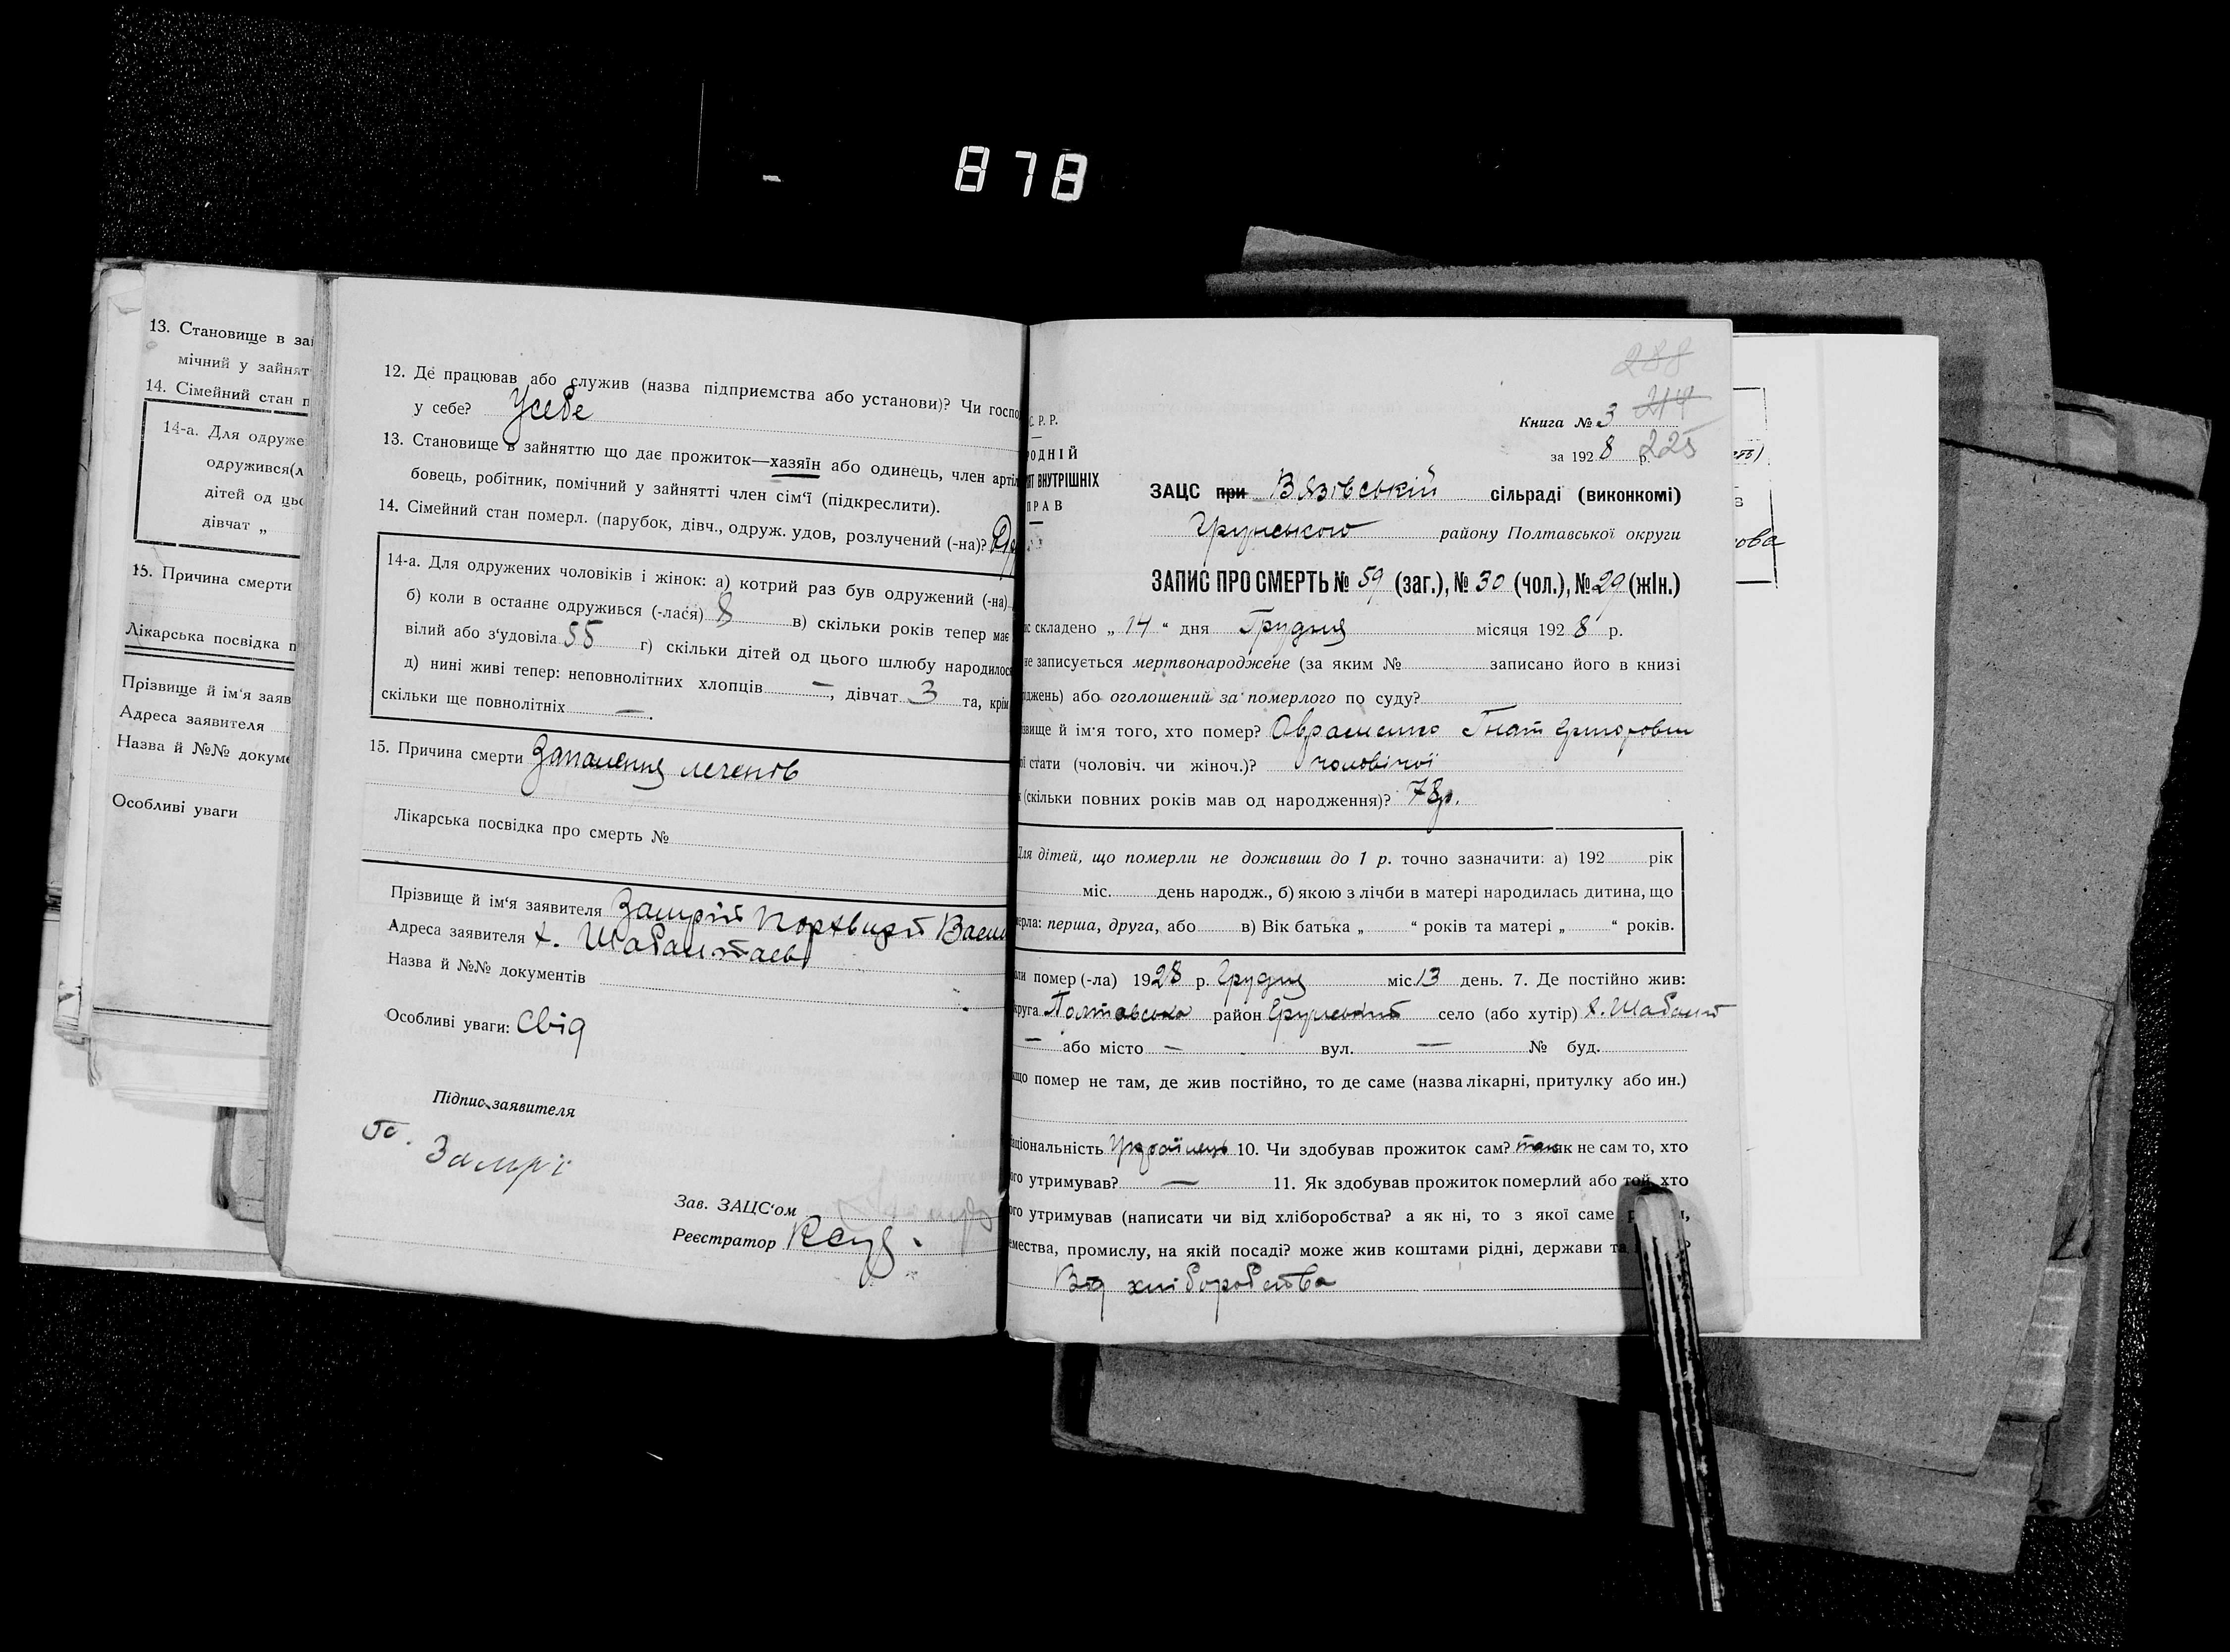 878
13. Становище в зай
мічний у зайнят
14. Сімейний стан п
14-а. Для одруже
одружився(л
дітей од цьо
дівчат „
15. Причина смерти
Лікарська посвідка п
Прізвище й ім'я заяв
Адреса заявителя
Назва й №№ докуме
Особливі уваги
12. Де працював або служив (назва підприємства або установи)? Чи госпо
у себе? Усебе
13. Становище в зайняттю що дає прожиток—хазяїн або одинець, член артіл
бовець, робітник, помічний у зайнятті член сім'ї (підкреслити).
14. Сімейний стан померл. (парубок, дівч., одруж. удов, розлучений (-на)?
14-а. Для одружених чоловіків і жінок: а) котрий раз був одружений (-на)
б) коли в останнє одружився (-лася) 8 в) скільки років тепер має
вілий або з'удовіла 55 г) скільки дітей од цього шлюбу народилося
д) нині живі тепер: неповнолітних хлопців —, дівчат 3 та, крім
скільки ще повнолітніх —.
15. Причина смерти Запалення легенів
Лікарська посвідка про смерть №
Прізвище й ім'я заявителя Замрій
Адреса заявителя х.
Назва й №№ документів
Особливі уваги: Свід
Підпис заявителя
Замрі
Зав. ЗАЦС'ом
Реєстратор
288
214
С. Р. Р.
Книга № 3
ОДНІЙ
за 192 8 р. 225
ЯТ ВНУТРІШНІХ
ПРАВ
ЗАЦС при Вязівській сільраді (виконкомі)
Грунського району Полтавської округи
ЗАПИС ПРО СМЕРТЬ № 59 (заг.), № 30 (чол.), № 29 (жін.)
ис складено „ 14 " дня Грудня місяця 192 8 р.
не записується мертвонароджене (за яким № записано його в книзі
оджень) або оголошений за померлого по суду?
звище й ім'я того, хто помер? Авраменко Гнат Григорович
ої стати (чоловіч. чи жіноч.)? чоловічої
к (скільки повних років мав од народження)? 78р.
Для дітей, що померли не доживши до 1 р. точно зазначити: а) 192 рік
міс. день народж., б) якою з лічби в матері народилась дитина, що
мерла: перша, друга, або в) Вік батька „ " років та матері „ " років.
оли помер (-ла) 1928 р. Грудня міс 13 день. 7. Де постійно жив:
круга Полтавська район Грунський село (або хутір)
— або місто — вул. — № буд.
кщо помер не там, де жив постійно, то де саме (назва лікарні, притулку або ин.)
аціональність Українець 10. Чи здобував прожиток сам? так як не сам то, хто
ого утримував? — 11. Як здобував прожиток померлий або той, хто
ого утримував (написати чи від хліборобства? а як ні, то з якої саме
емества, промислу, на якій посаді? може жив коштами рідні, держави та
Від хліборобства
ова